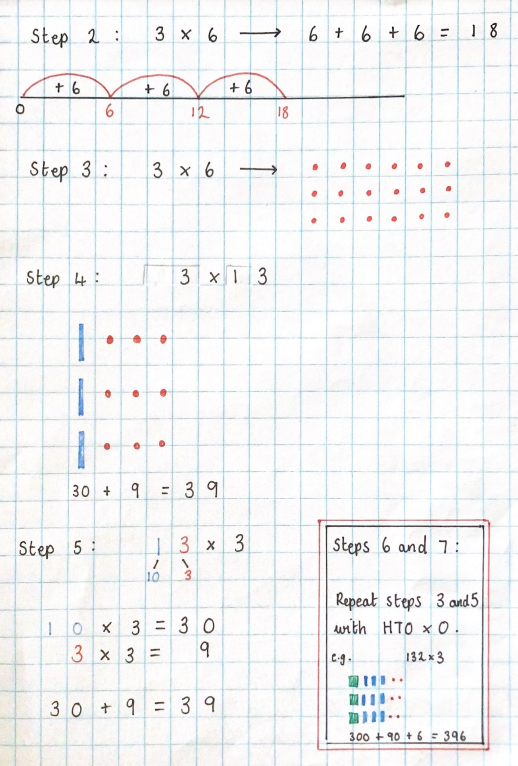 Step 2 : 3 × 6 ⟶ 6 + 6 + 6 = 18
+6 +6 +6
0 6 12 18
Step 3 : 3 × 6 ⟶
Step 4 : 3 × 13
30 + 9 = 39
Step 5 : 13 × 3
10 3
10 × 3 = 30
3 × 3 = 9
30 + 9 = 39
Steps 6 and 7 :
Repeat steps 3 and 5
with HTO × O.
e.g. 132 × 3
300 + 90 + 6 = 396